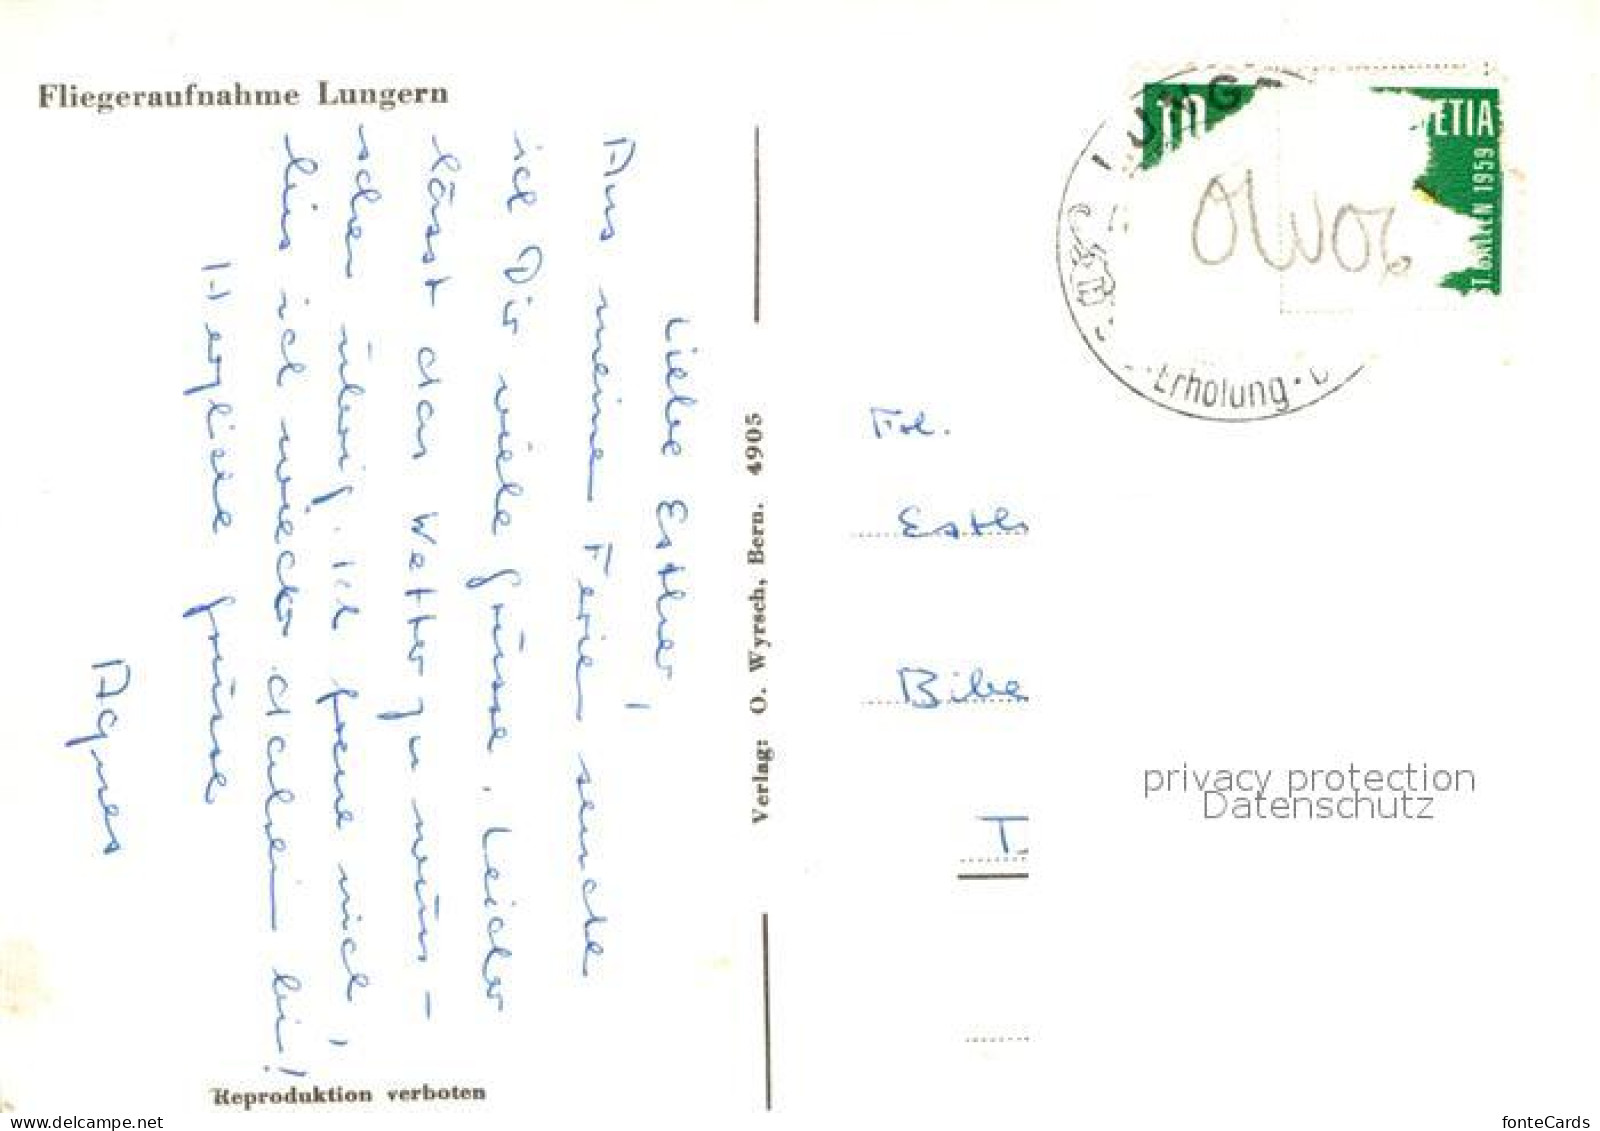 Fliegeraufnahme Lungern
Liebe Esther,
Aus meinen Ferien sende
ich Dir viele Grüsse. Leider
lässt das Wetter zu wün-
schen übrig. Ich freue mich,
bis ich wieder daheim bin!
Herzliche Grüsse
Agnes
Reproduktion verboten
Verlag: O. Wyrsch, Bern. 4905
LUNGE
Erholung
10
ETIA
1959
Frl.
Esth
Bibe
T.
privacy protection
Datenschutz
www.delcampe.net
fonteCards